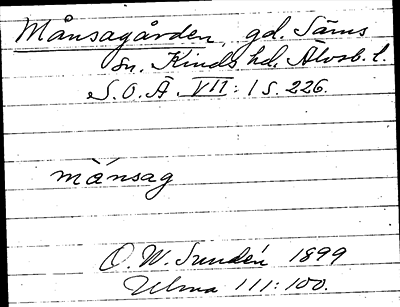 Månsagården, gd. Säms
sn. Kinds hd. Älvsb. l.
S.O.Ä VII: 1 s. 226.
månsag
O. W. Sundén 1899
Ulma 111:100.